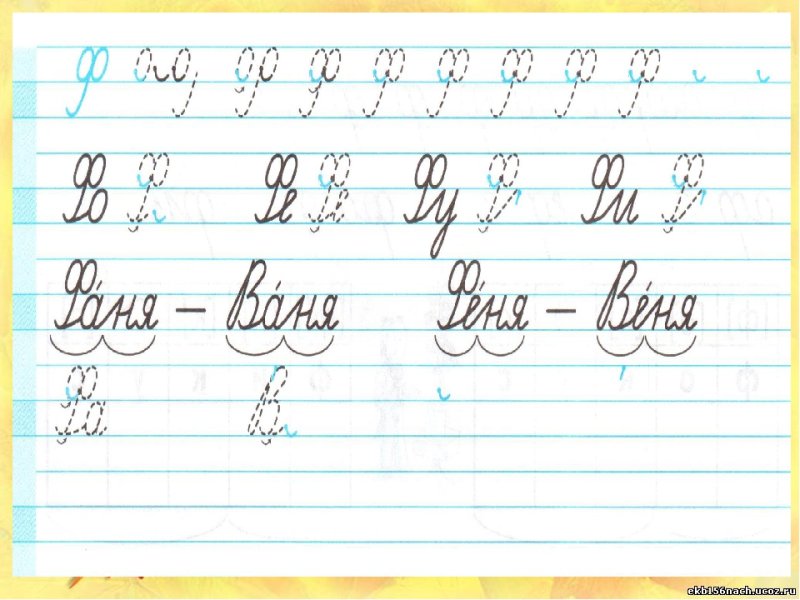 ф ф ф ф ф ф ф ф
Фо Ф Фе Фе Фу Ф Фи Ф
Фа́ня – Ва́ня Фе́ня – Ве́ня
Фа В
ekb156nach.ucoz.ru